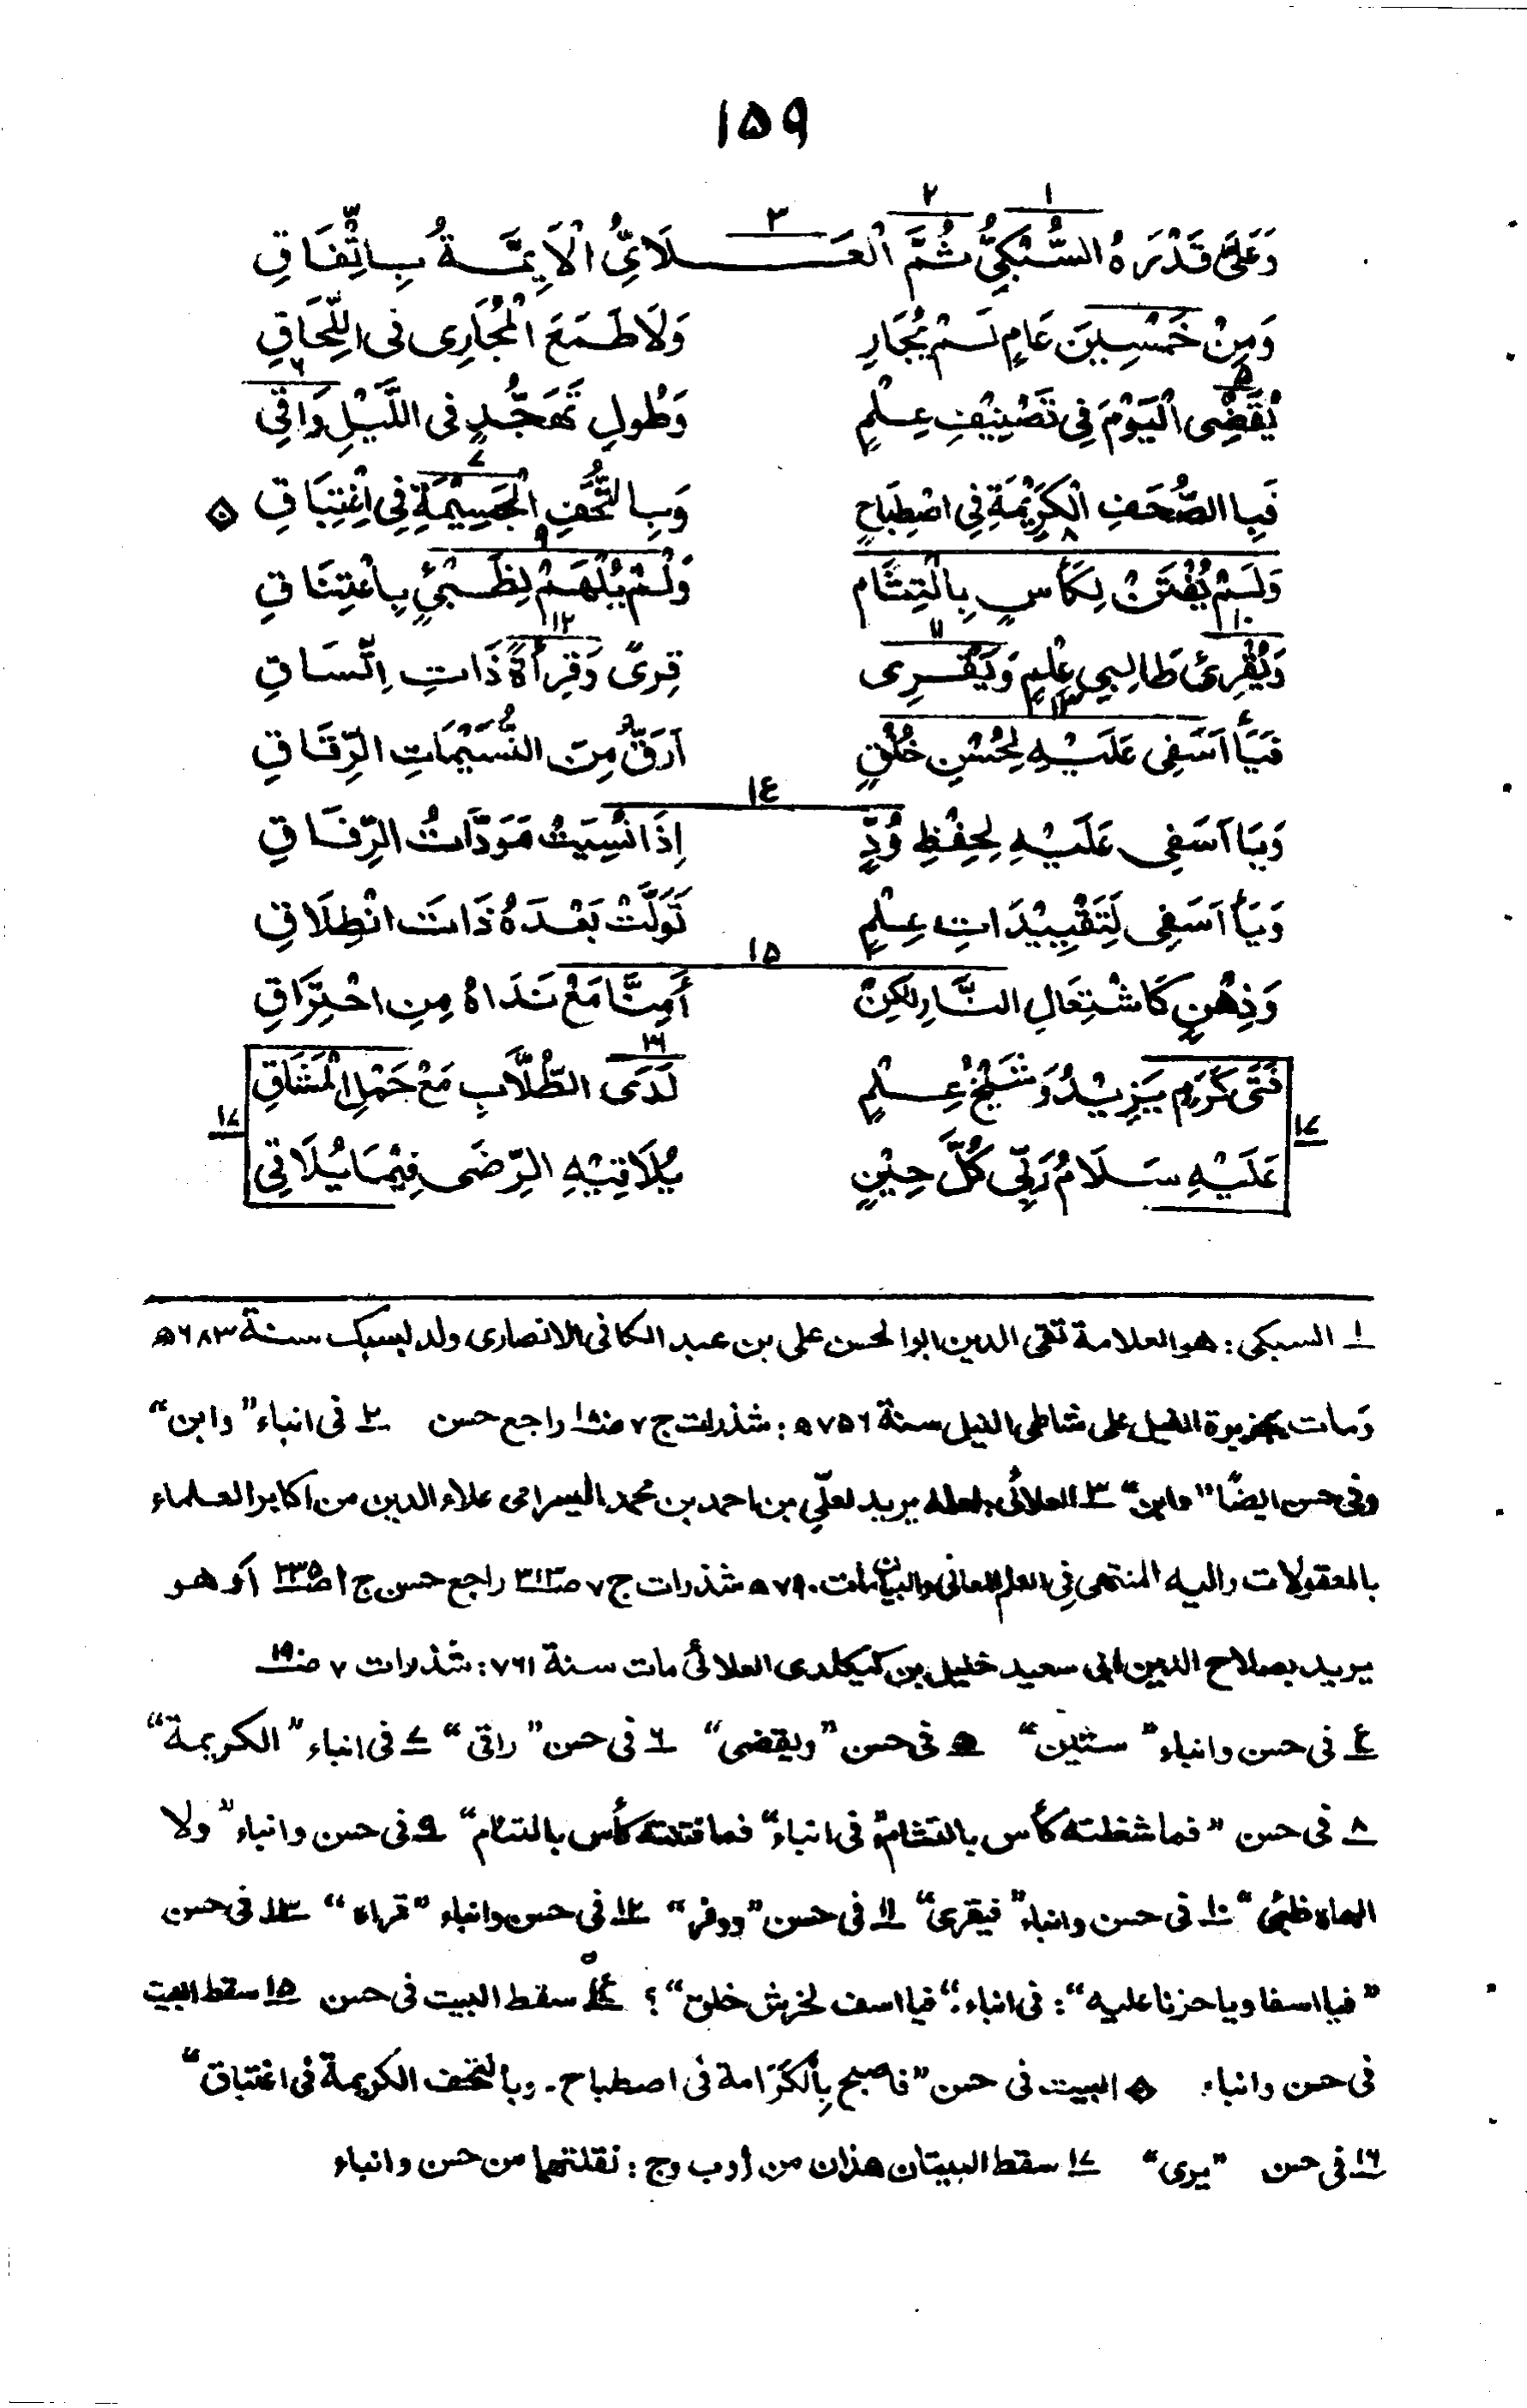 ١٥٩
١ ٢ ٣
وَعَلَىٰ قَدْرَهُ السُّبْكِيُّ ثُمَّ الْعَـــلَائِيُّ الْاَئِمَّةُ بِاتِّفَاقِ
وَمِنْ خَمْسِينَ عَامٍ لَمْ يُجَارِ وَلَا طَمَعَ الْمُجَارِى فى اللِّحَاقِ
٥ ٦
يُقَضِّى الْيَوْمَ فِى تَصْنِيْفِ عِلْمٍ وَطُولِ تَهَجُّدٍ فى اللَّيْلِ وَاقِى
٧
فَبِا الصُّحَفِ الْكَرِيْمَةِ فِى اصْطِبَاحٍ وَبِا لتُّحَفِ الْجَسِيْمَةِ فِى اغْتِبَاقِ ۵
٨ ٩
وَلَمْ يُفْتَنْ لِكَأْسٍ بِالْتِثَام وَلَمْ يُلْهَمْ لِظَبْيٍ بِاعْتِنَاقِ
١٠ ١١ ١٢
وَيُقْرِئُ طَالِبِي عِلْمٍ وَيَقْرِى قِرىً وَقِرأَةً ذَاتِ اِتِّسَاقِ
١٣
فَيَأ اَسَفِى عَلَيْهِ لِحُسْنِ خُلْقٍ اَرَقُّ مِنَ النُّسَيْمَاتِ الرِّقَاقِ
١٤
وَيَا اَسَفِى عَلَيْهِ لِحِفْظِ وُدٍّ اِذَا نُسِيَتْ مَوَدَّاتُ الرِّفَاقِ
وَيَأ اَسَفِى لِتَقْيِيْدَاتِ عِلْمٍ تَوَلَّتْ بَعْدَهُ ذَاتَ انْطِلَاقِ
١٥
وَذِهْنٍ كَاشْتِعَالِ النَّارِ لكِنْ أَمِنَّا مَعْ نَدَاهُ مِنِ احْتِرَاقِ
١٦
فَتَى كَرَمٍ يَزِيْدُ وَشَيْخُ عِلْمٍ لَدَى الطُّلَّابِ مَعْ حَمْلِ الْمَشَاقِ
١٧ ١٧
عَلَيْهِ سَلَامُ رَبِّى كُلَّ حِيْنٍ يُلَاقِيْهِ الرِّضَى فِيْمَا يُلَاقِى
١ السبكى : هو العلامة تقى الدين ابوا لحسن على بن عبد الكافى الانصارى ولد لبسبك سنة ٦٨٣ھ
ومات بجزيرة الفيل على شاطى النيل سنة ٧٥٦ھ : شذرات ج ٧ صـ١٨٠ راجع حسن ٢ فى انباء "وابن"
وفى حسن ايضًا "وابن" ٣ العلائى : لعله يريد لعلّي بن احمد بن محمد السيرامى علاء الدين من اكابر العلماء
بالمعقولات واليه المنتهى فِى العلم المعانى والبيان مات ٧٩٠ھ شذرات ج ٧ صـ٣١٣ راجع حسن ج ١ صـ٢٣٥ أو هو
يريد بصلاح الدين ابى سعيد خليل بن كيكلدى العلائى مات سنة ٧٦١ : شذرات ٧ صـ١٩٠
٤ فى حسن وانباء "ستين" ٥ فى حسن "ويقضى" ٦ فى حسن "راقى" ٧ فى انباء "الكريمة"
٨ فى حسن "فما شغلته كأس بالتثام" فى انباء "فما فتنته كأس بالتثام" ٩ فى حسن وانباء "ولا
الهاه ظبئ" ١٠ فى حسن وانباء "فيقرى" ١١ فى حسن "ووفر" ١٢ فى حسن وانباء "قراه" ١٣ فى حسن
"فيا اسفا ويا حزنا عليه" : فى انباء : "فيا اسف لخرش خلق" ؟ ١٤ سقط البيت فى حسن ١٥ سقط البيت
فى حسن وانباء ۵ البيت فى حسن "فاصبح بِالكَرَامة فى اصطباح - وبالتحف الكريمة فى اغتباق"
١٦ فى حسن "يرى" ١٧ سقط البيتان هذان من أ وب وج : نقلتهما من حسن وانباء